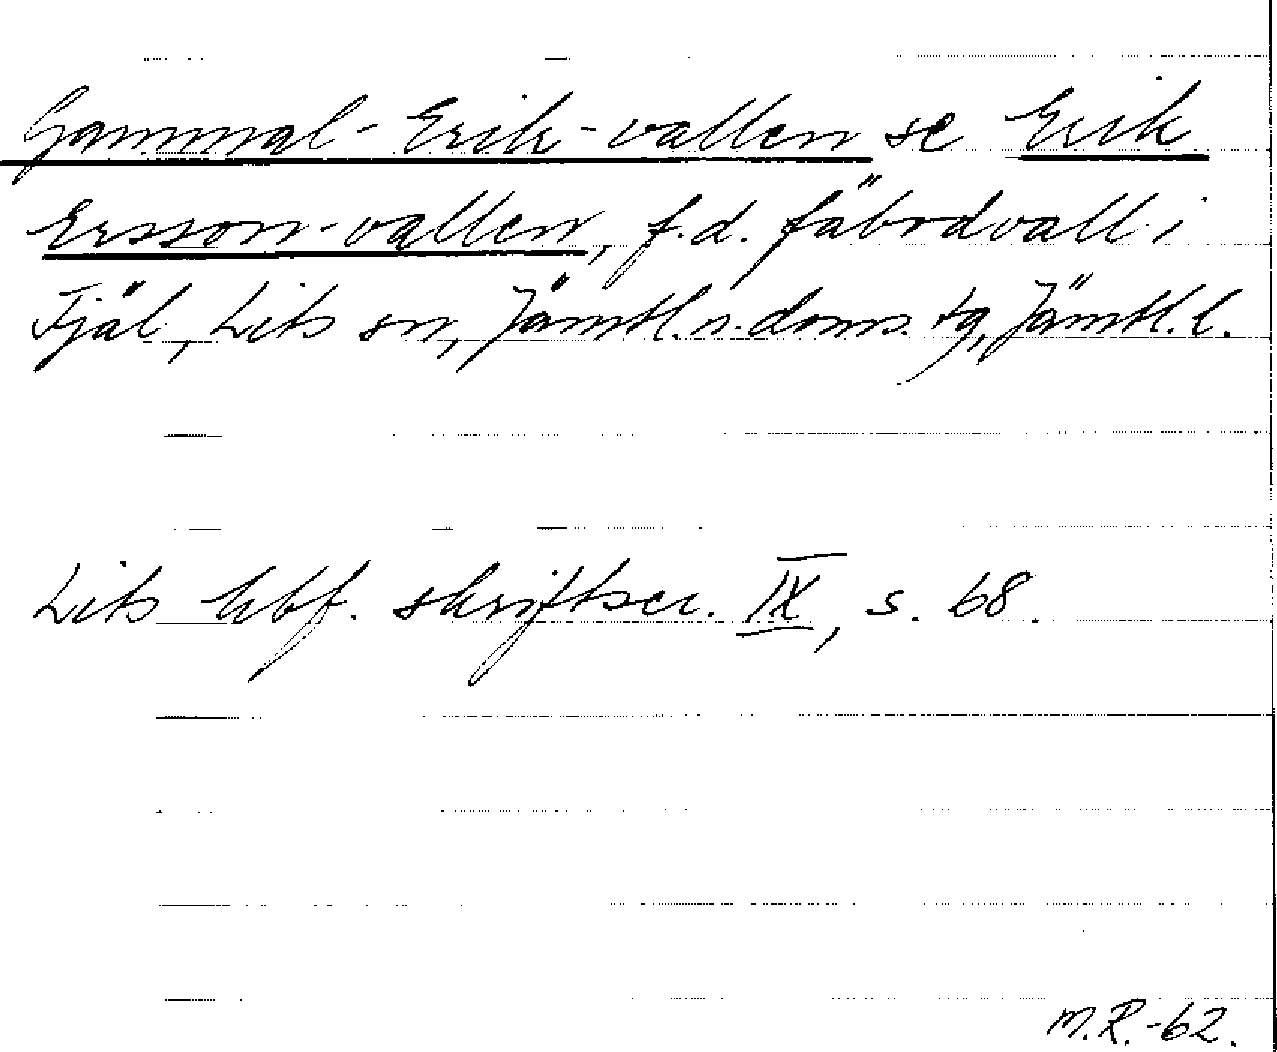 Gammal-Erik-vallen se Erik
Ersson-vallen, f.d. fäbodvall i
Tjäl, Lits sn, Jämtl. n. doms. tg, Jämtl. l.
Lits hbf. skriftser. IX, s. 68.
M.R.-62.